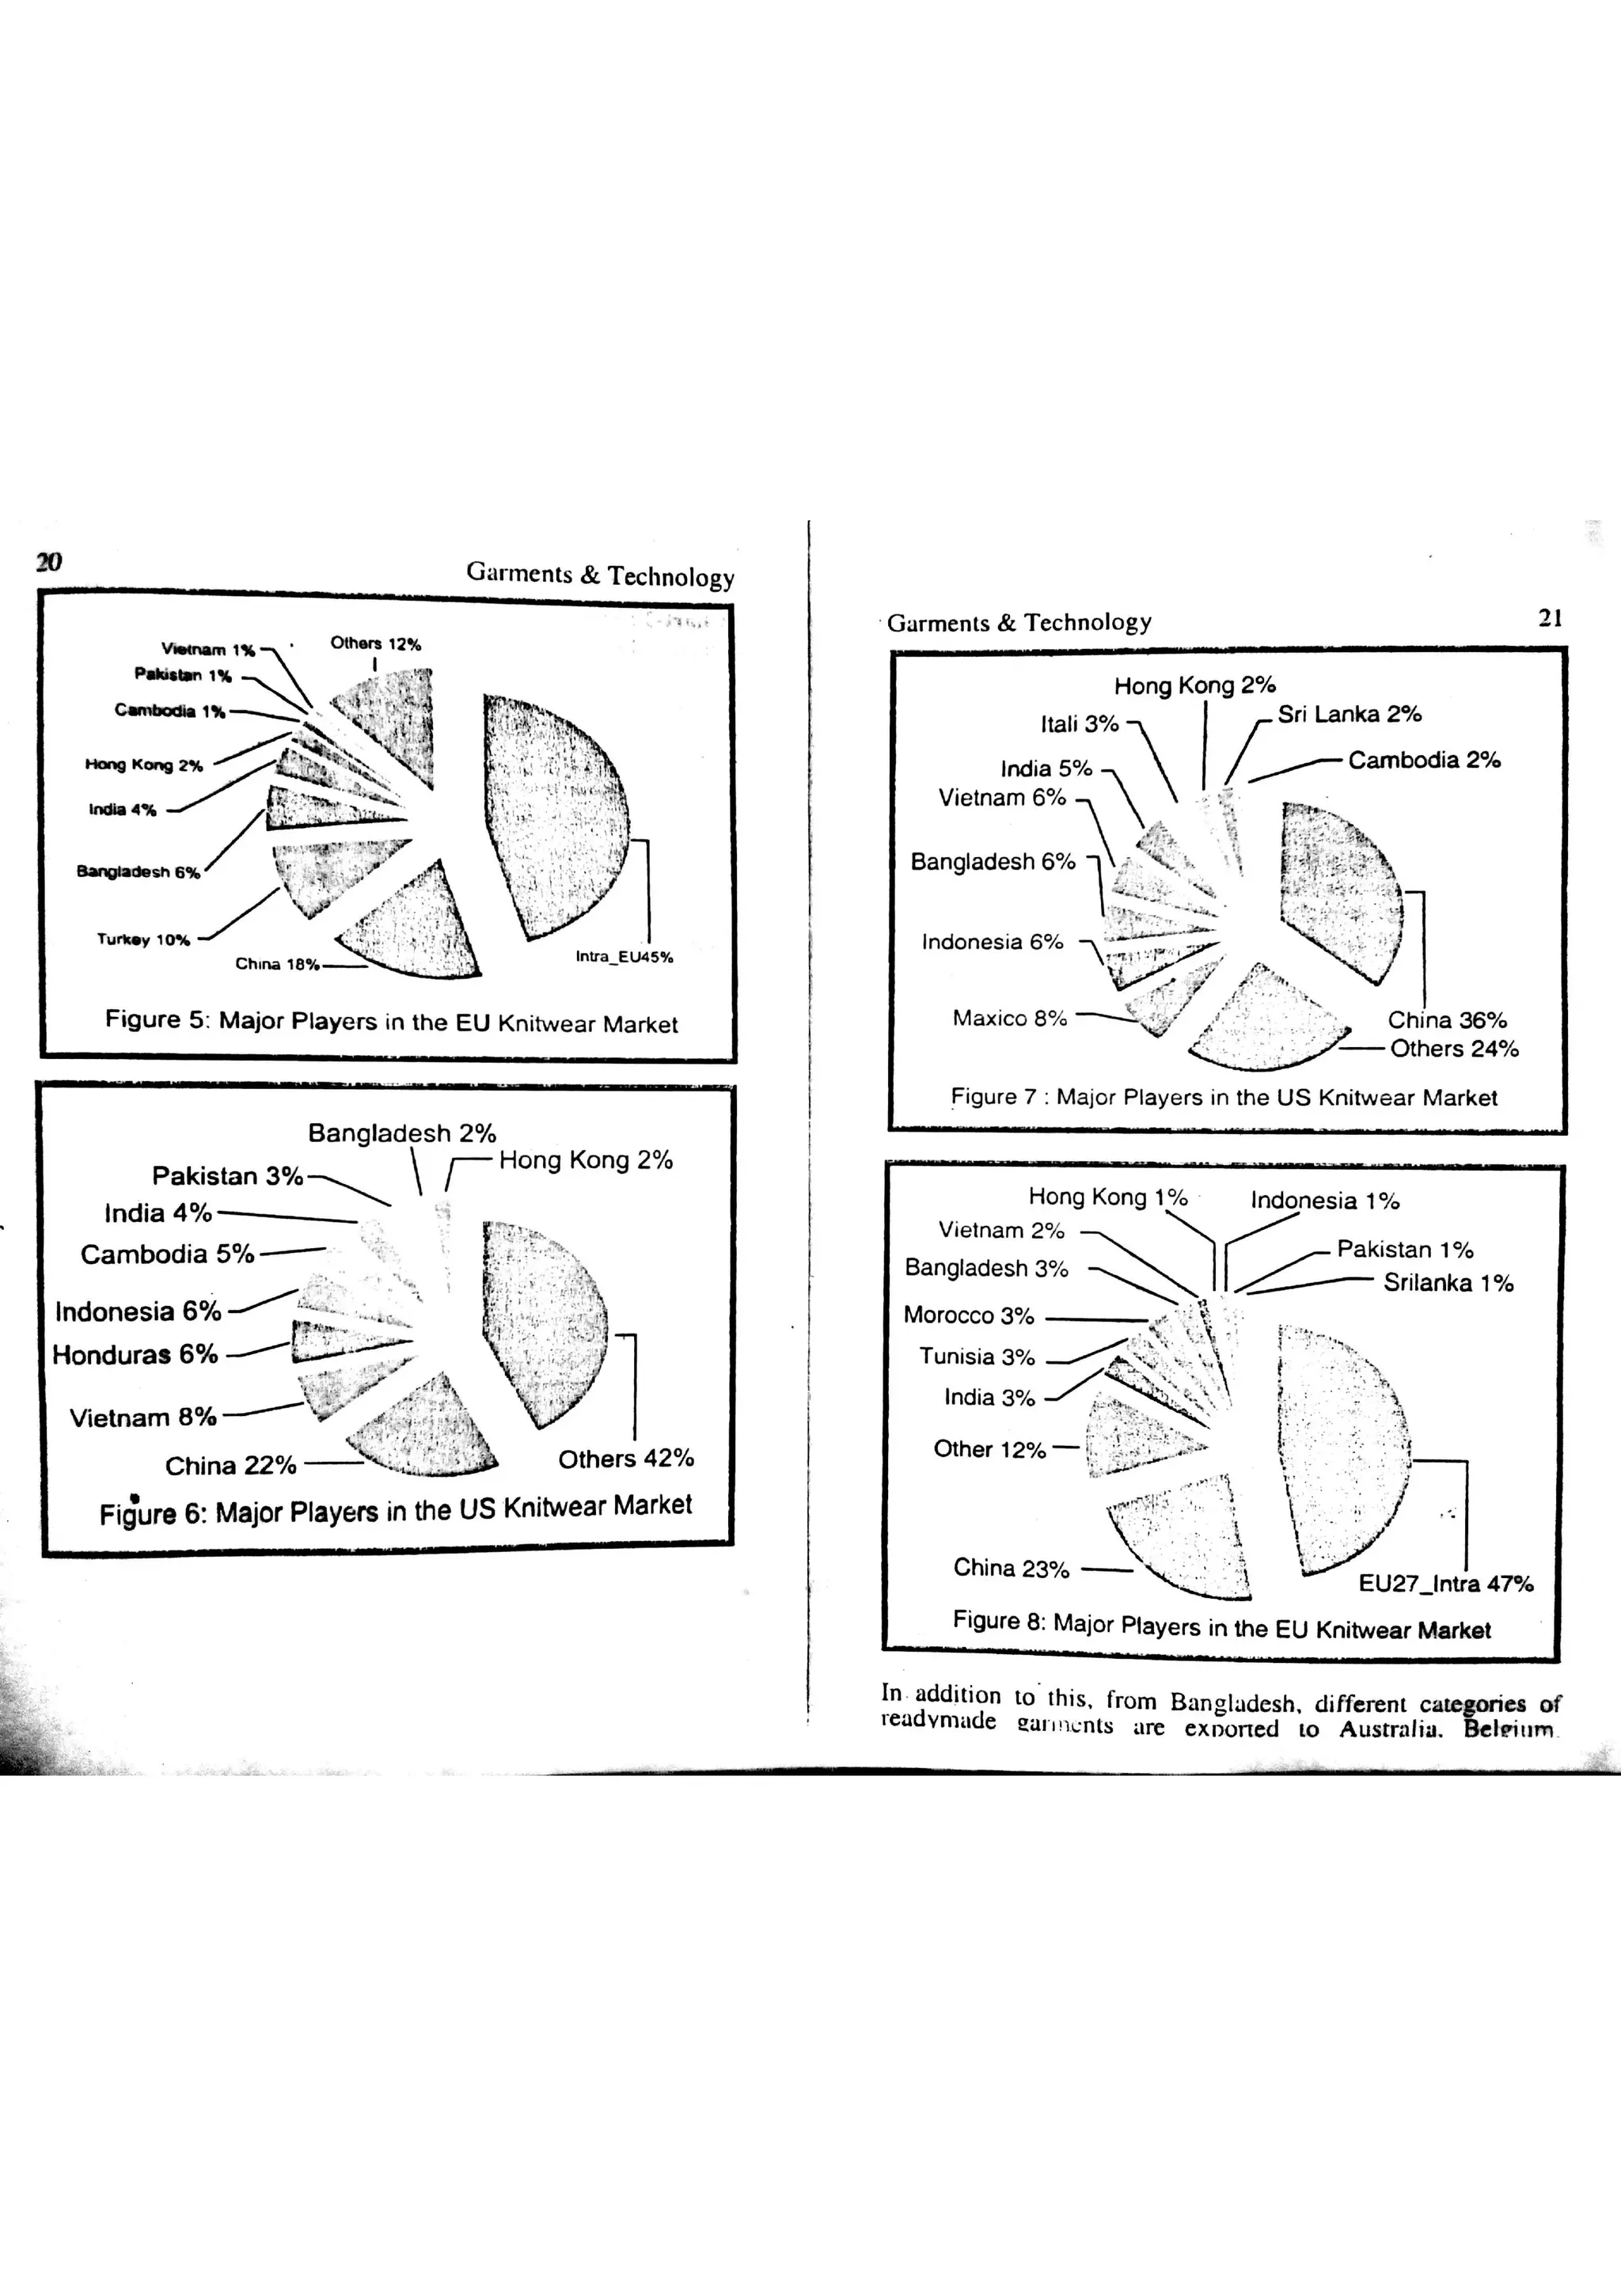 20
Garments & Technology
Vietnam 1%
Others 12%
Pakistan 1%
Cambodia 1%
Hong Kong 2%
India 4%
Bangladesh 6%
Turkey 10%
China 18%
Intra_EU45%
Figure 5: Major Players in the EU Knitwear Market
Bangladesh 2%
Hong Kong 2%
Pakistan 3%
India 4%
Cambodia 5%
Indonesia 6%
Honduras 6%
Vietnam 8%
China 22%
Others 42%
Figure 6: Major Players in the US Knitwear Market
Garments & Technology
21
Hong Kong 2%
Itali 3%
Sri Lanka 2%
India 5%
Cambodia 2%
Vietnam 6%
Bangladesh 6%
Indonesia 6%
Maxico 8%
China 36%
Others 24%
Figure 7 : Major Players in the US Knitwear Market
Hong Kong 1%
Indonesia 1%
Vietnam 2%
Pakistan 1%
Bangladesh 3%
Srilanka 1%
Morocco 3%
Tunisia 3%
India 3%
Other 12%
China 23%
EU27_Intra 47%
Figure 8: Major Players in the EU Knitwear Market
In addition to this, from Bangladesh, different categories of
readymade garments are exported to Australia. Belgium